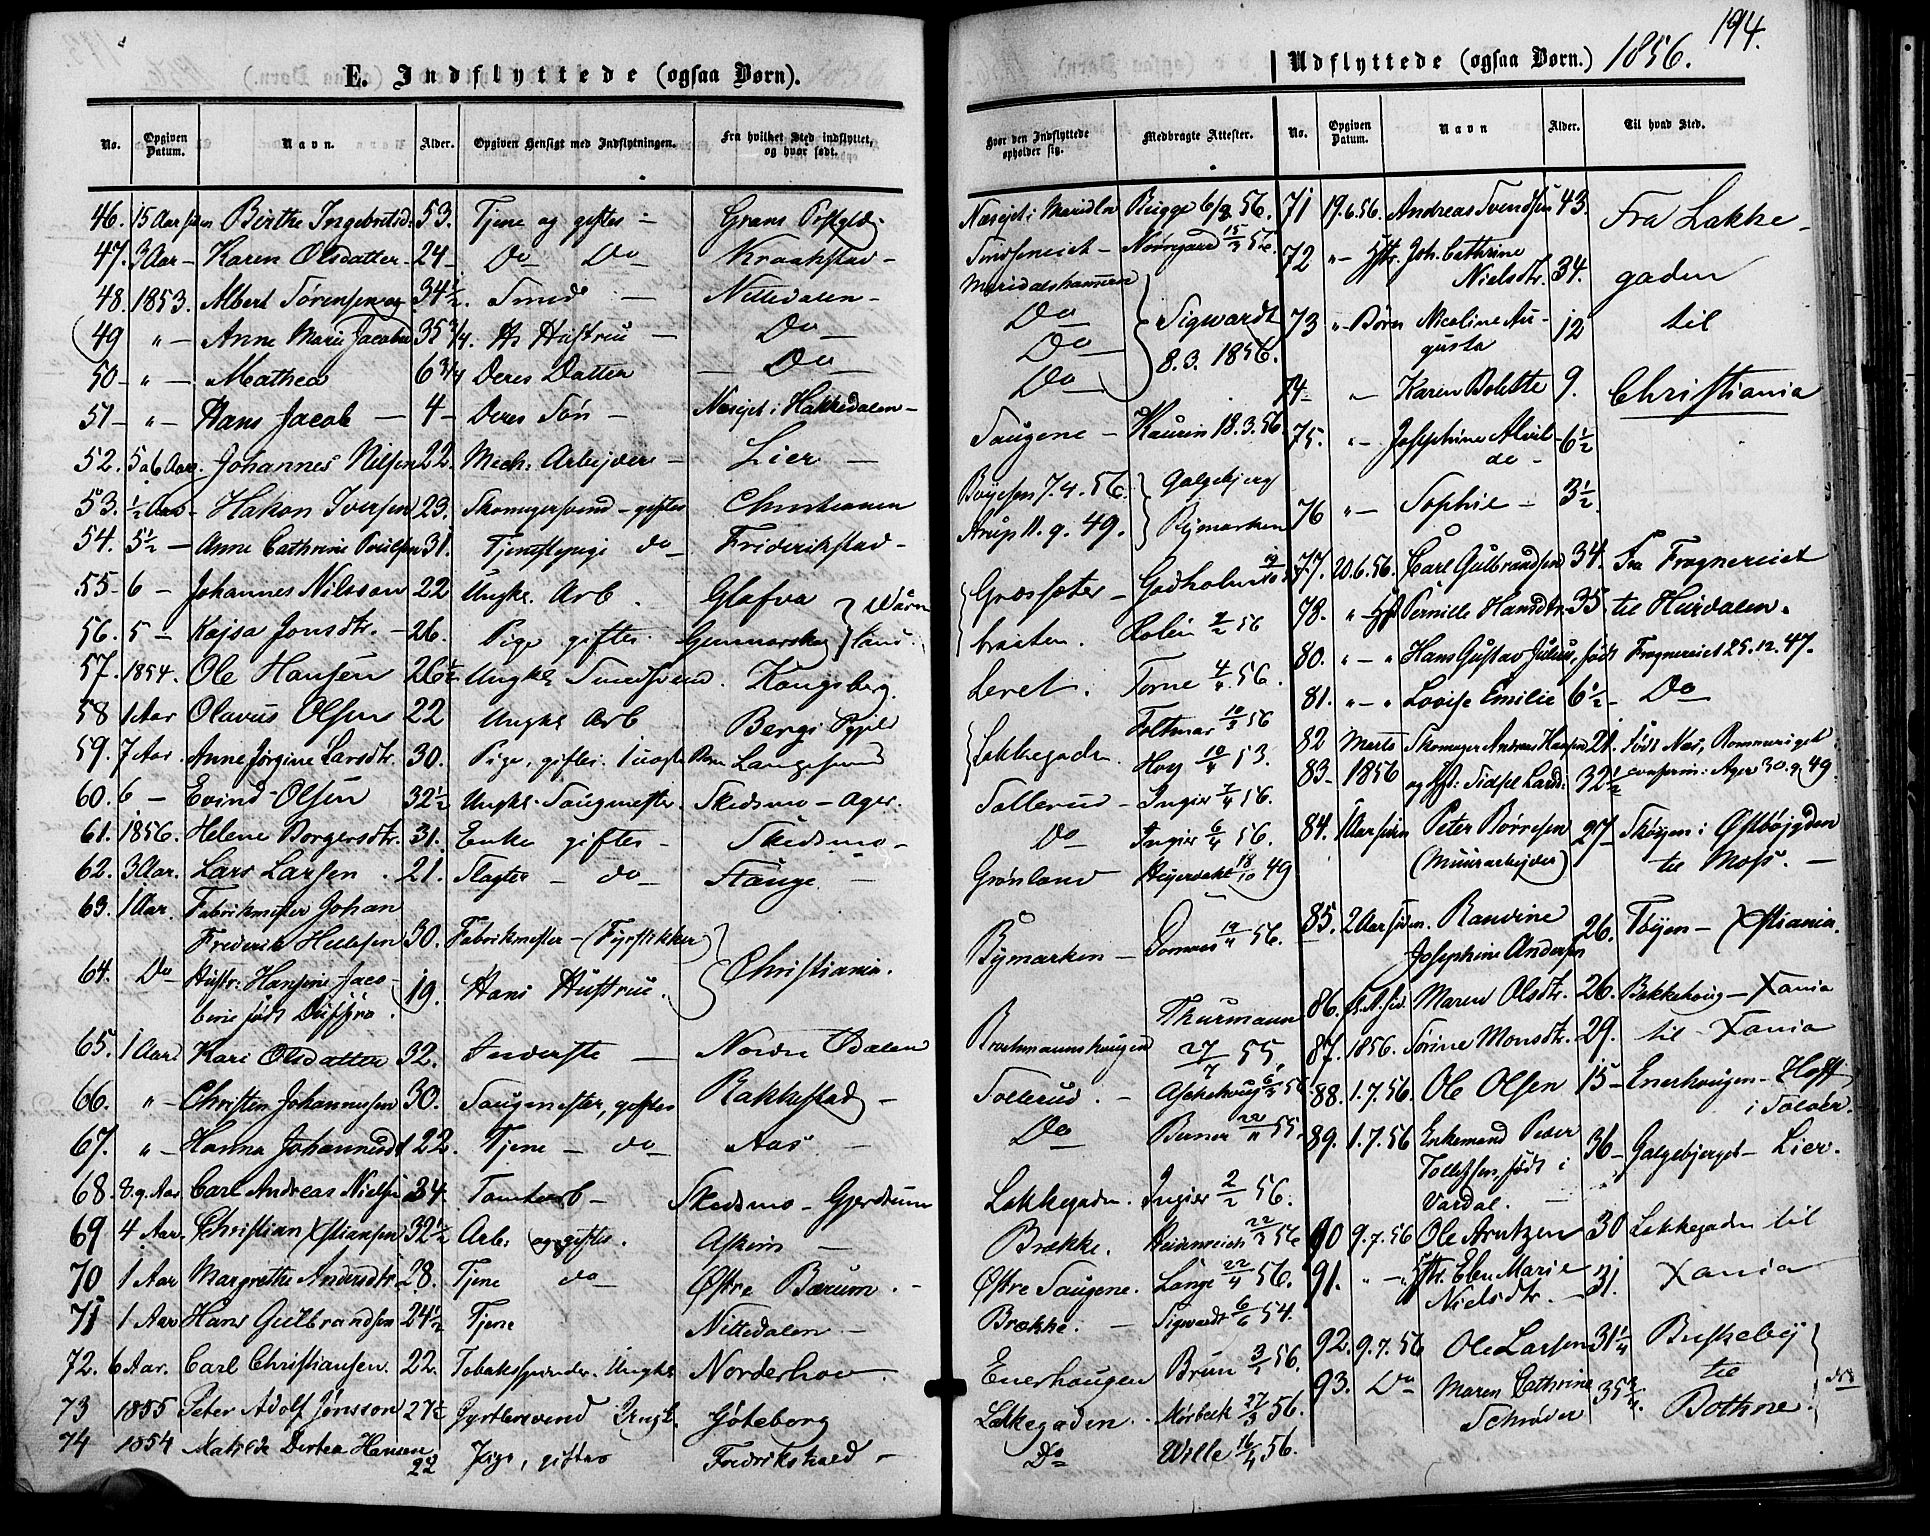 194.
E. Indflyttede (ogsaa Børn).
Udflyttede (ogsaa Børn.) 1856.
No. Opgiven Datum. Navn. Alder. Opgiven Hensigt med Indflytningen. Fra hvilket Sted indflyttet, og hvor født.
46. 15 Aar siden Birthe Ingebretsd. 53. Tjene og giftes - Grans Præstgeld
47. 3 Aar - Karen Olsdatter - 24 - Do Do Kraakstad -
48. 1853. Albert Sørensen og 34 1/2. Smed - Nittedalen -
49 " - Anne Marie Jacobsd 35 3/4. Hs Hustru - Do -
50 - " - Mathea 6 3/4 Deres Datter - Do -
51 - " - Hans Jacob - 4 - Deres Søn - Næsejet i Hakkedalen -
52. 5 a 6 Aar. Johannes Nilsen 22. Mech: Arbejder - Lier -
53. 1/2 Aar - Hakon Iversen 23. Skomagersvend - giftes Christiania
54. 5 1/2 - Anne Cathrine Poulsen 31. Tjenestepige do Friderikstad -
55 - 6 - Johannes Nilsson 22 Ungk. Arb. Glafva
56. 5 - Kajsa Jonsdtr. - 26. Pige giftes. Gunnarskog
57. 1854. Ole Hansen 26 1/2 Ungkl Smedsvend. Kongsberg.
58 1 Aar Olavus Olsen 22 Ungkl Arb Bergs Pgjld
59. 7 Aar. Anne Jørgine Larsdtr. 30. Pige, giftes. Langesund
60. 6 - Evind Olsen 32 1/2 Ungkl. Saugmester. Skedsmo - Ager.
61. 1856. Helene Borgersdtr. 31. Enke giftes - Skedsmo -
62. 3 Aar. Lars Larsen. 21. Slagter - do - Hauge. -
63. 1 Aar. Fabrikmester Johan
Frederik Hellesen 30. Fabrikmester - (Fyrstikker)
Christiania.
64. Do Hustr: Hansine Jaco-
bine født 19. Hans Hustrue.
65. 1 Aar Kari Olsdatter 32. Inderste - Nordre Odalen
66. " - Christen Johannesen 30. Saugmester, giftes Rakkestad -
67. " - Hanna Johannesdt 22. Tjene - do - Aas -
68. 8. 9. Aar Carl Andreas Nielsen 34. Tomtearb - Skedsmo - Gjerdrum
69 4 Aar. Christian Xstiansen 32 1/2 Arb. og giftes. Askim -
70 1 Aar Margrethe Andersdtr. 28. Tjene do - Østre Bærum. -
71 1 Aar Hans Gulbrandsen 24 1/2 Tjene Nittedalen -
72. 6 Aar. Carl Christiansen. 22. Tobaksspinder. Ungkl Norderhov.
73 1855 Peter Adolf Jonsson 27 1/2 Gjørtlersvend Ungk. Göteborg
74 1854 Matilde Dortea Hansen 22 Pige, giftes Fredrikshald -
Hvor den Indflyttede opholder sig. Medbragte Attester.
Næsejet i Maridalen Brigge 6/3 56.
Smedseiet - Nørregaard 15/3 56.
Maridalshammeren
Do
Do Sigwardt
Do 8.3. 1856.
Saugene - Kaurin 18.3.56.
Boyesen 7.4.56. Galgebjerg
Arup 11.9.49. Bymarken
Græsseter - Godholm
braaten. Rolin 2/2 56
Leret. Torne 4/4 56.
Foltmar 10/3 56
Lakkegaden Hoy 10/4 53.
Tollerud - Ingier 7/4 56.
Do Ingier 6/4 56.
Grønland Heyerdahl 18/10 49
Bymarken - 14/4 56.
Brochmannshaugen Thurmann 27/7 55,
Tollerud. - Aschehoug 56
Do Berner 22/11 55.
Lakkegaden. Ingier 2/2 56.
Brække. Heidenreich 22/3 56
Østre Saugene. Lange 22/4 56.
Brække. - Sigwardt 6/6 54.
Enerhaugen Brun 3/4 56.
Lakkegaden. Mørbech 27/3 56.
Do Wille 16/4 56.
No. Opgiven Datum. Navn Alder. Til hvad Sted.
71 19.6.56. Andreas Svendsen 43. Fra Lakke-
72 " - Hstr. Joh. Cathrine
Nielsdtr. 34. gaden
73 " - Børn Nicoline Au-
gusta 12 til
74 - " - Karen Bolette 9. Christiania
75. " - Josephine Alvil-
de - 6 1/2
76 " - Sophie - 3 1/2
77. 20.6.56. Carl Gulbrandsen 34. Fra Frognereiet
78. " - Hst Pernille Hansdtr. 35 - til Hurdalen.
80. " - " Hans Gustav Julius, født Frognereiet 25.12.47.
81. " - " Lovise Emilie 6 1/2 - Do
82 Marts Skomager Andreas Hansen 21. Født Næs, Rommeriget
83 - 1856 og Hst: Sidsel Larsd: 32 1/2 confirm: Ager 30.9.49.
84. 1 Aar siden Peter Børresen 27 - Skøyen i Østbøjgden
(Muurarbejder) til Moss. -
85. 2 Aar siden. Randine
Josephine Andersen 26. Tøyen - Xstiania.
86. Maren Olsdtr. 26. Bakkehaug - Xania
87. 1856. Sørine Monsdtr. 29. til Xania
88. 1.7.56. Ole Olsen 15 - Enerhaugen - Hoff
i Soløer.
89. 1.7.56 Enkemand Peder
Tollefsen, født i 36 - Galgebjerget - Lier.
Vardal. -
90 9.7.56 Ole Arntzen 30 Lakkegaden til
91. " - " Hstr. Elen Marie
Nielsdtr. - 31. Xania
92. 9.7.56 Ole Larsen 31 1/4 Buskeby
93. Do Maren Cathrine 35 3/4. til
Schrøder Bothne.